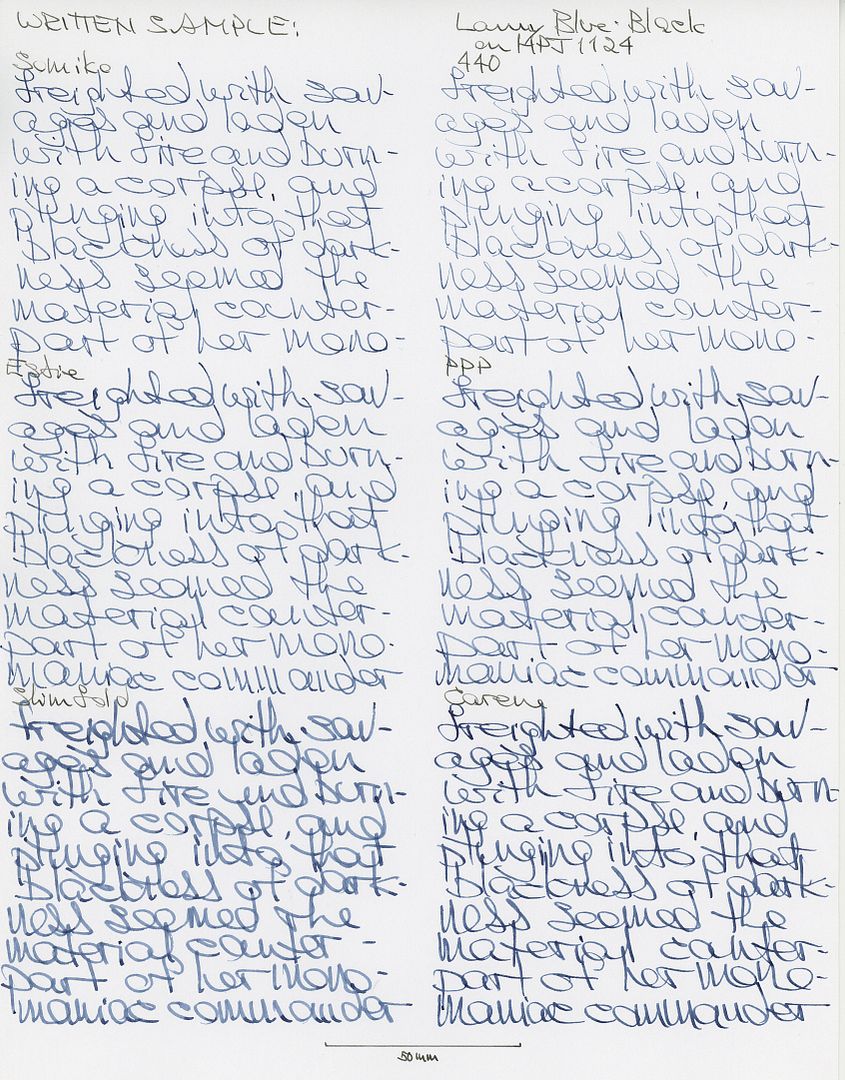 WRITTEN SAMPLE:
Lamy Blue-Black
on MPJ 1124
Sumiko
freighted with sav-
ages and laden
with fire and burn-
ing a corpse, and
plunging into that
blackness of dark-
ness seemed the
material counter-
part of her mono-
Estie
freighted with sav-
ages and laden
with fire and burn-
ing a corpse, and
plunging into that
blackness of dark-
ness seemed the
material counter-
part of her mono-
maniac commander
Slim Solo
freighted with sav-
ages and laden
with fire and burn-
ing a corpse, and
plunging into that
blackness of dark-
ness seemed the
material counter-
part of her mono-
maniac commander
440
freighted with sav-
ages and laden
with fire and burn-
ing a corpse, and
plunging into that
blackness of dark-
ness seemed the
material counter-
part of her mono-
PPP
freighted with sav-
ages and laden
with fire and burn-
ing a corpse, and
plunging into that
blackness of dark-
ness seemed the
material counter-
part of her mono-
maniac commander
Carene
freighted with sav-
ages and laden
with fire and burn-
ing a corpse, and
plunging into that
blackness of dark-
ness seemed the
material counter-
part of her mono-
maniac commander
50mm